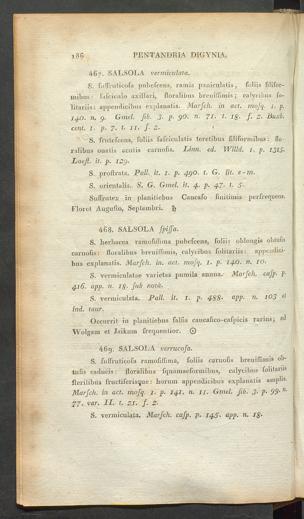 186 PENTANDRIA DIGYNIA.
467. SALSOLA vermiculata.
S. suffruticosa pubescens, ramis paniculatis, foliis filifor-
mibus: fasciculo axillari, floralibus brevissimis; calycibus so-
litariis: appendicibus explanatis. Marsch. in act. mosq. 1. p.
140. n. 9. Gmel. sib. 3. p. 90. n. 71. t. 18. f. 2. Buxb.
cent. 1. p. 7. t. 11. f. 2.
S. frutescens, foliis fasciculatis teretibus filiformibus: flo-
ralibus ovatis acutis carnosis. Linn. ed. Willd. 1. p. 1315.
Loefl. it. p. 129.
S. prostrata. Pall. it. 1. p. 490. t. G. fig. e-m.
S. orientalis. S. G. Gmel. it. 4. p. 47. t. 5.
Suffrutex in planitiebus Caucaso finitimis perfrequens.
Floret Augusto, Septembri. ♄
468. SALSOLA spissa.
S. herbacea ramosissima pubescens, foliis oblongis obtusis
carnosis: floralibus brevissimis, calycibus solitariis: appendici-
bus explanatis. Marsch. in act. mosq. 1. p. 140. n. 10.
S. vermiculatae varietas pumila annua. Marsch. casp. p.
416. app. n. 18. sub nota.
S. vermiculata. Pall. it. 1. p. 488. app. n. 103 et
ind. taur.
Occurrit in planitiebus salsis caucasico-caspicis rarius; ad
Wolgam et Jaikum frequentior. ☉
469. SALSOLA verrucosa.
S. suffruticosa ramosissima, foliis carnosis brevissimis ob-
tusis caducis: floralibus squamaeformibus, calycibus solitariis
sterilibus fructiferisque: horum appendicibus explanatis amplis.
Marsch. in act. mosq. 1. p. 141. n. 11. Gmel. sib. 3. p. 99. n.
77. var. II. t. 21. f. 2.
S. vermiculata. Marsch. casp. p. 145. app. n. 18.